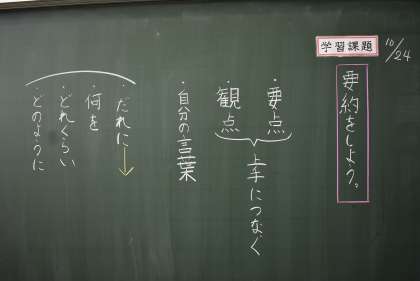 10/24
学習課題
要約をしよう。
・要点
・観点
上手につなぐ
・自分の言葉
・だれに
・何を
・どれくらい
・どのように